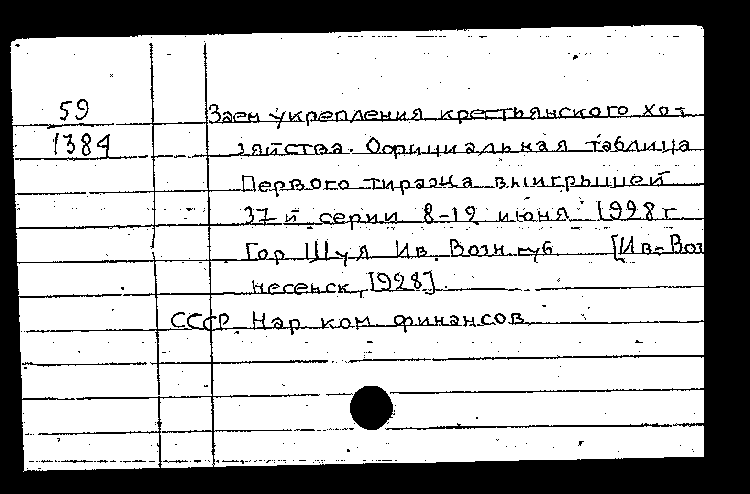 59
1384
Заем укрепления крестьянского хо-
зяйства. Официальная таблица
Первого тиража выигрышей
37-й серии 8-12 июня 1928 г
Гор Шуя Ив. Возн. губ. [Ив-Воз
несенск, 1928].
СССР. Нар ком финансов